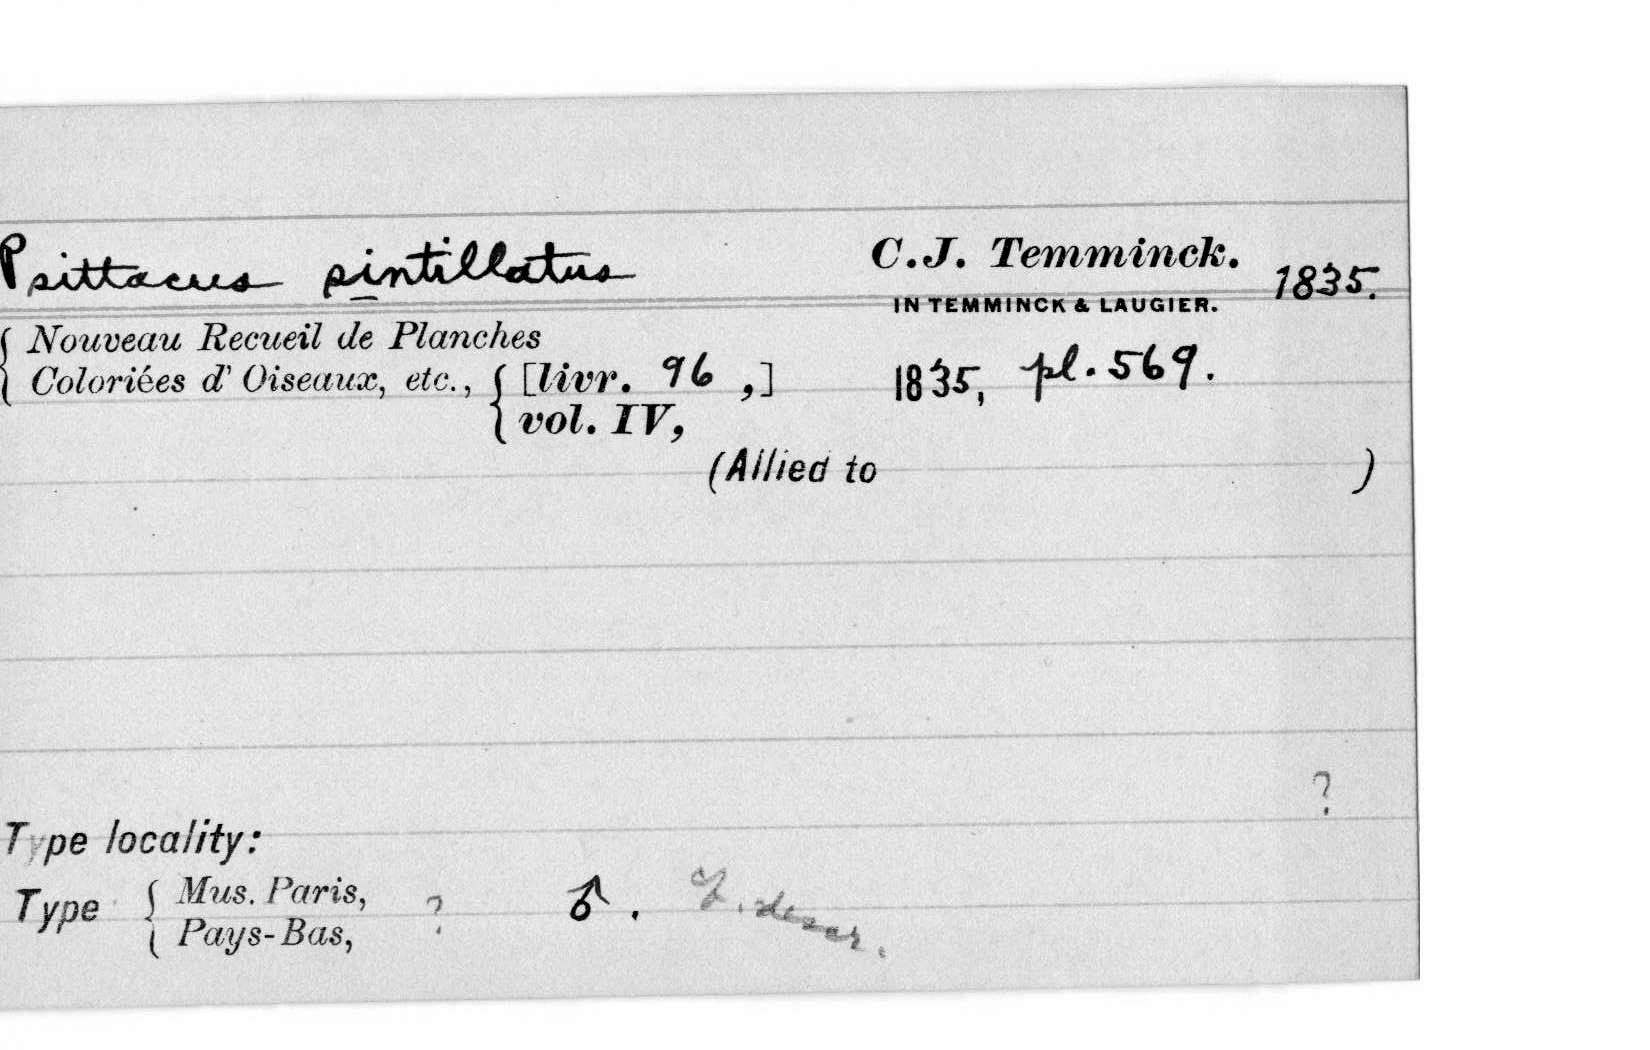 Psittacus sintillatus C.J. Temminck. 1835.
IN TEMMINCK & LAUGIER.
{ Nouveau Recueil de Planches
Coloriées d' Oiseaux, etc., { [livr. 96 ,] 1835, pl. 569.
vol. IV,
(Allied to )
?
Type locality:
Type { Mus. Paris, ? ♂.
Pays-Bas,